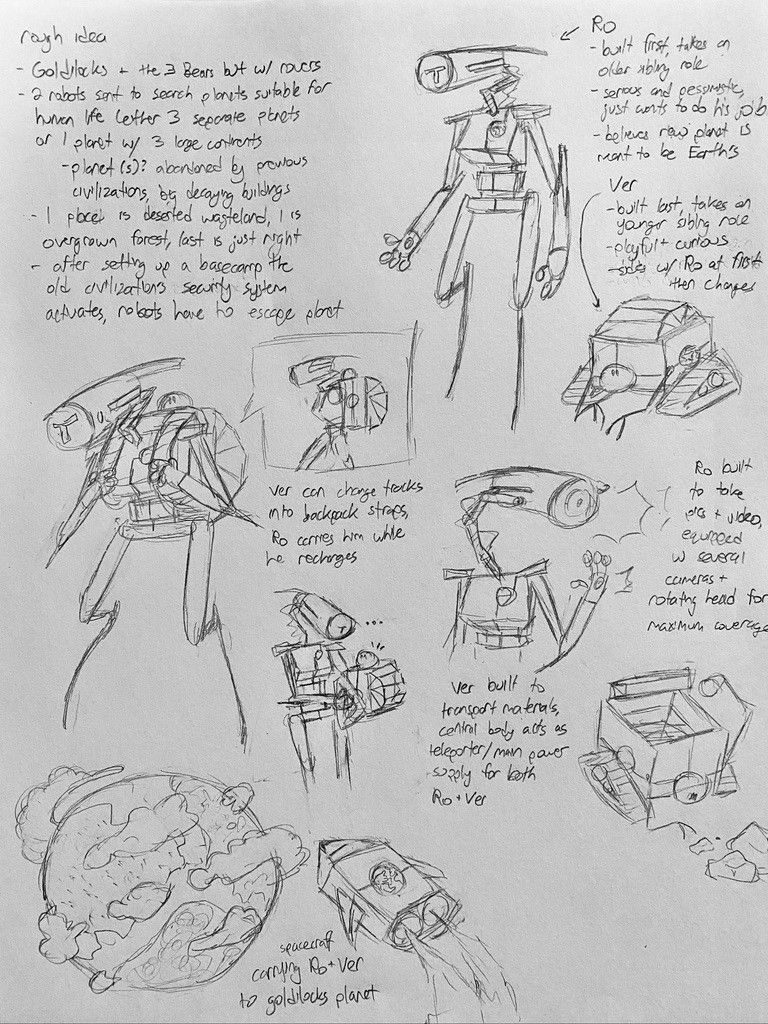 rough idea
- Goldilocks + the 3 Bears but w/ rovers
- 2 robots sent to search planets suitable for
human life (either 3 separate planets
or 1 planet w/ 3 large continents
- planet(s)? abandoned by previous
civilizations, big decaying buildings
- 1 place is deserted wasteland, 1 is
overgrown forest, last is just right
- after setting up a basecamp the
old civilizations security system
activates, robots have to escape planet
Ro
- built first, takes on
older sibling role
- serious and pessimistic,
just wants to do his job
- believes new planet is
meant to be Earth's
Ver
- built last, takes on
younger sibling role
- playful + curious
- sides w/ Ro at first
then changes
T
T
Ver can change tracks
into backpack straps,
Ro carries him while
he recharges
...
Ro built
to take
pics + video,
equipped
w several
cameras +
rotating head for
maximum coverage
Ver built to
transport materials,
central body acts as
teleporter/main power
supply for both
Ro + Ver
spacecraft
carrying Ro + Ver
to goldilocks planet